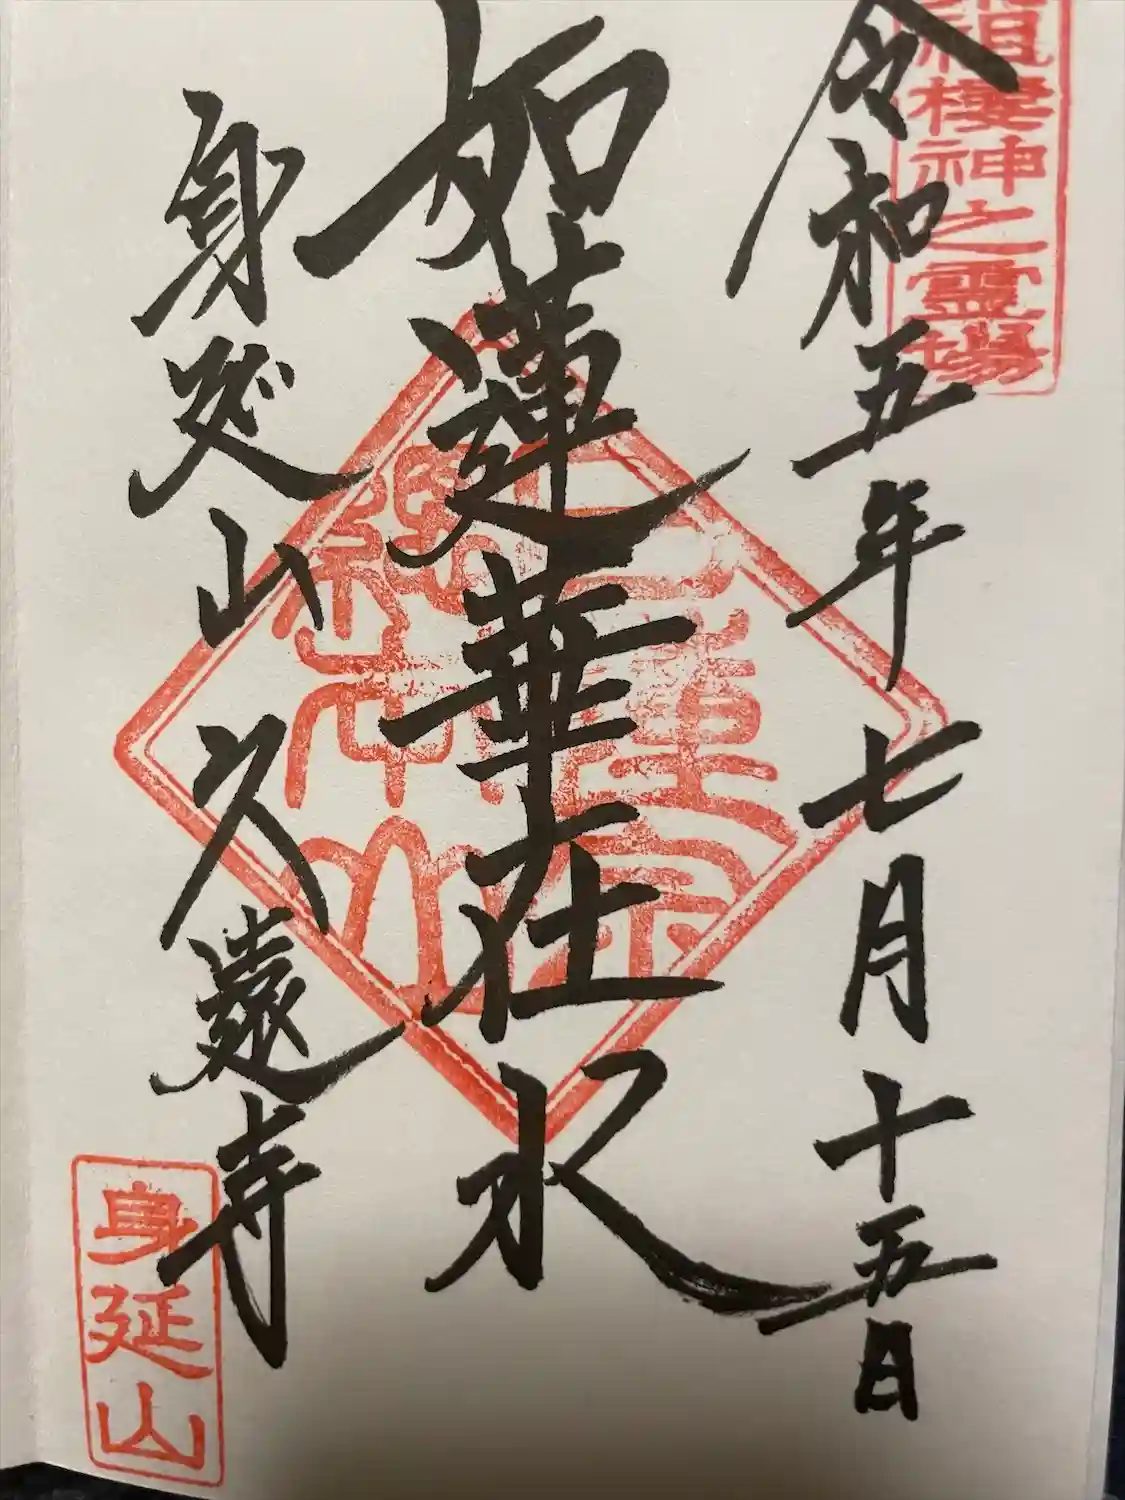 祖棲神之霊場
令和五年七月十五日
如蓮華在水
日蓮宗
總本山
身延山久遠寺
身延山